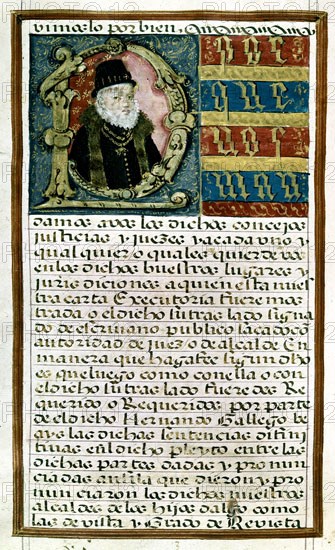 vimos lo por bien
P
que
que
vos
man
damos a vos los dichos concejos
justicias y juezes y a cada uno y
qual quier o quales quier de vos
en los dichos vuestros lugares y
juris diciones a quien esta nuestra
carta Executoria fuere mos
trada o el dicho su tras lado signa
do de escrivano publico sacado con
autoridad de juez o de alcalde En
manera que haga fee segun dho
es que luego como con ella o con
el dicho su tras lado fueredes Re
querido o Requeridos por parte
de el dicho Hernando Gallego be
ays las dichas sentencias difini
tivas en el dicho pleyto entre las
dichas partes dadas y pro nun
ciadas ansi la que dieron y pro
nunciaron los dichos nuestros
alcaldes de los hijos dalgo como
las de vista y Grado de Revista